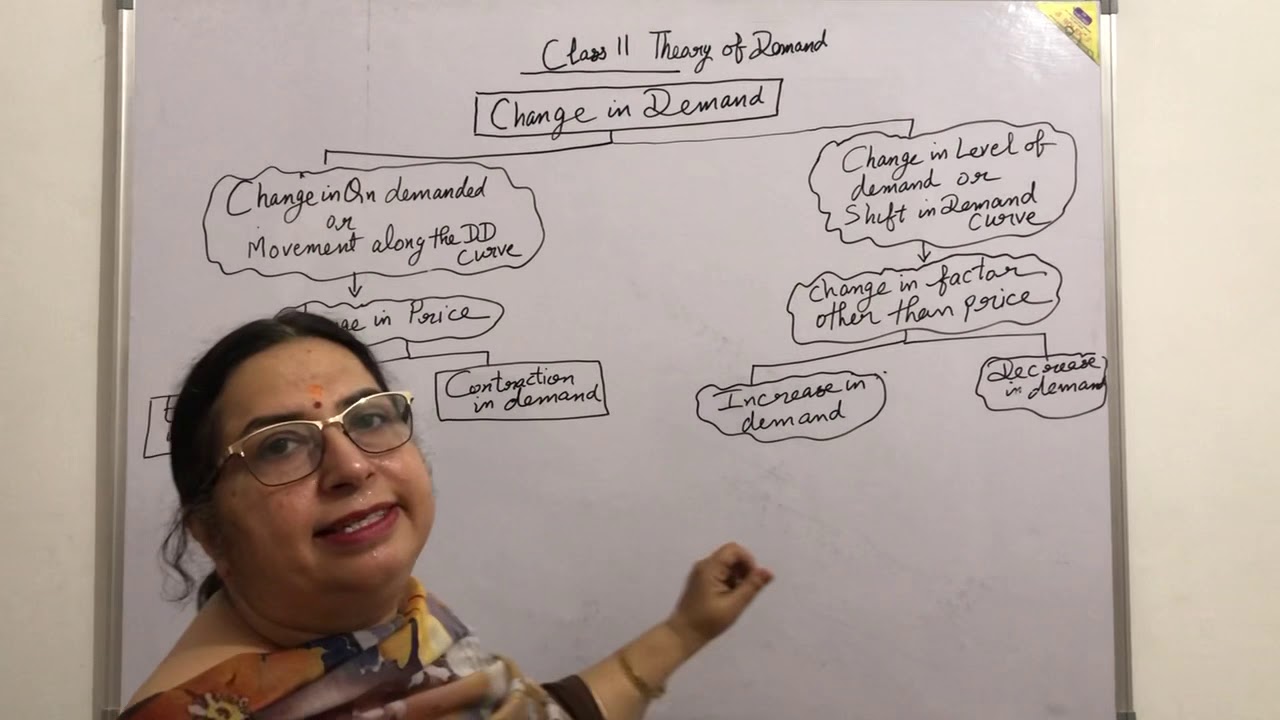 Class 11 Theory of Demand
Change in Demand
Change in Qn demanded
or
Movement along the DD
Curve
in Price
Contraction
in demand
Change in Level of
demand or
Shift in Demand
Curve
Change in factor
other than price
Increase in
demand
Decrease
in demand